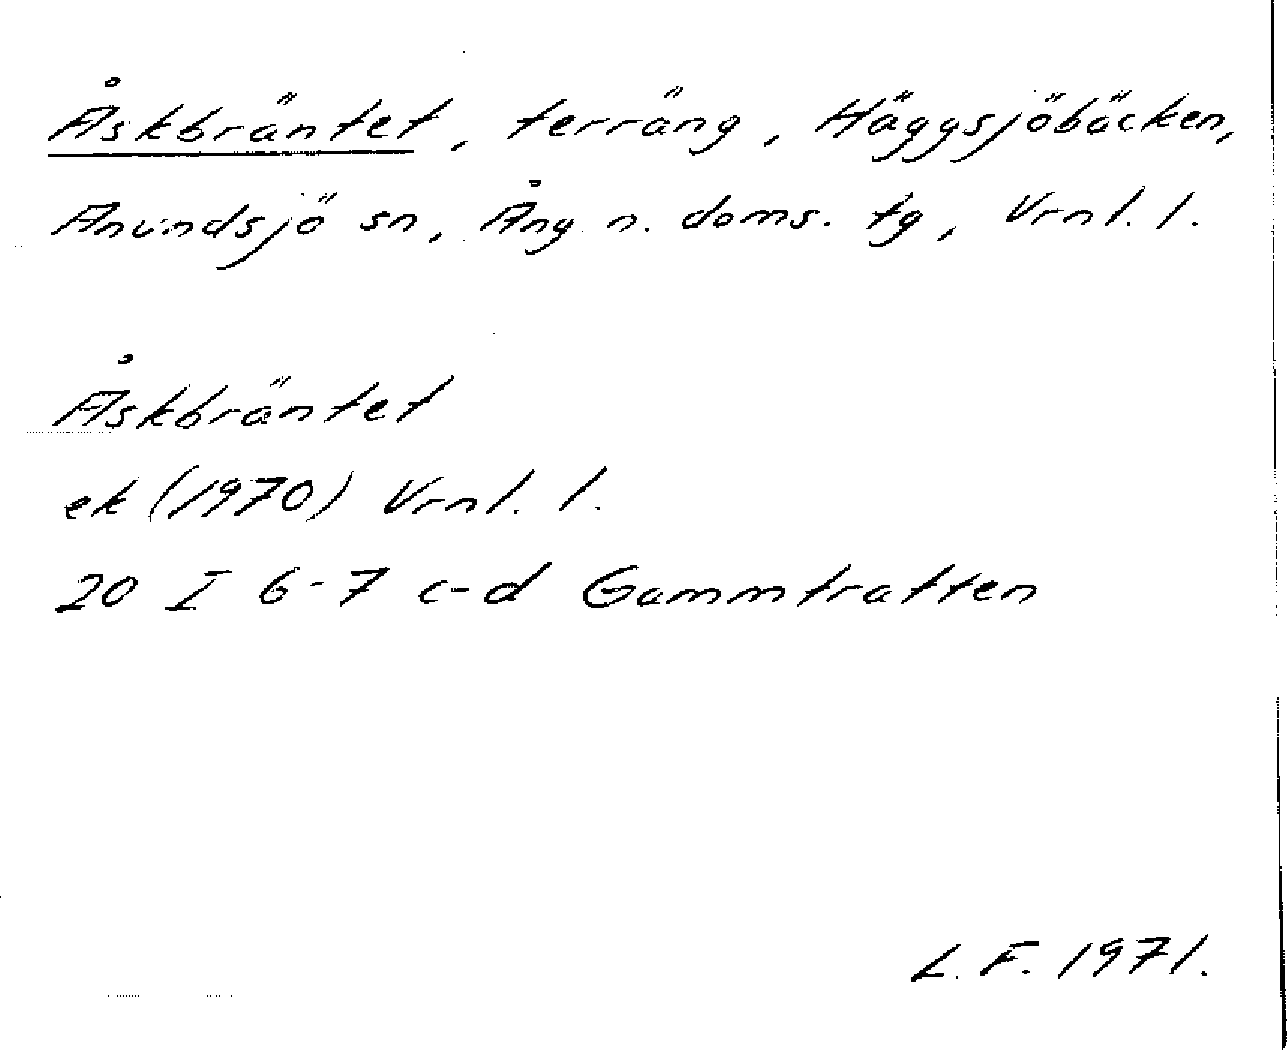 Åskbräntet, terräng, Häggsjöbäcken,
Anundsjö sn, Ång. n. doms. tg, Vrnl. l.
Åskbräntet
ek (1970) Vrnl. l.
20 I 6-7 c-d Gammtratten
L. F. 1971.